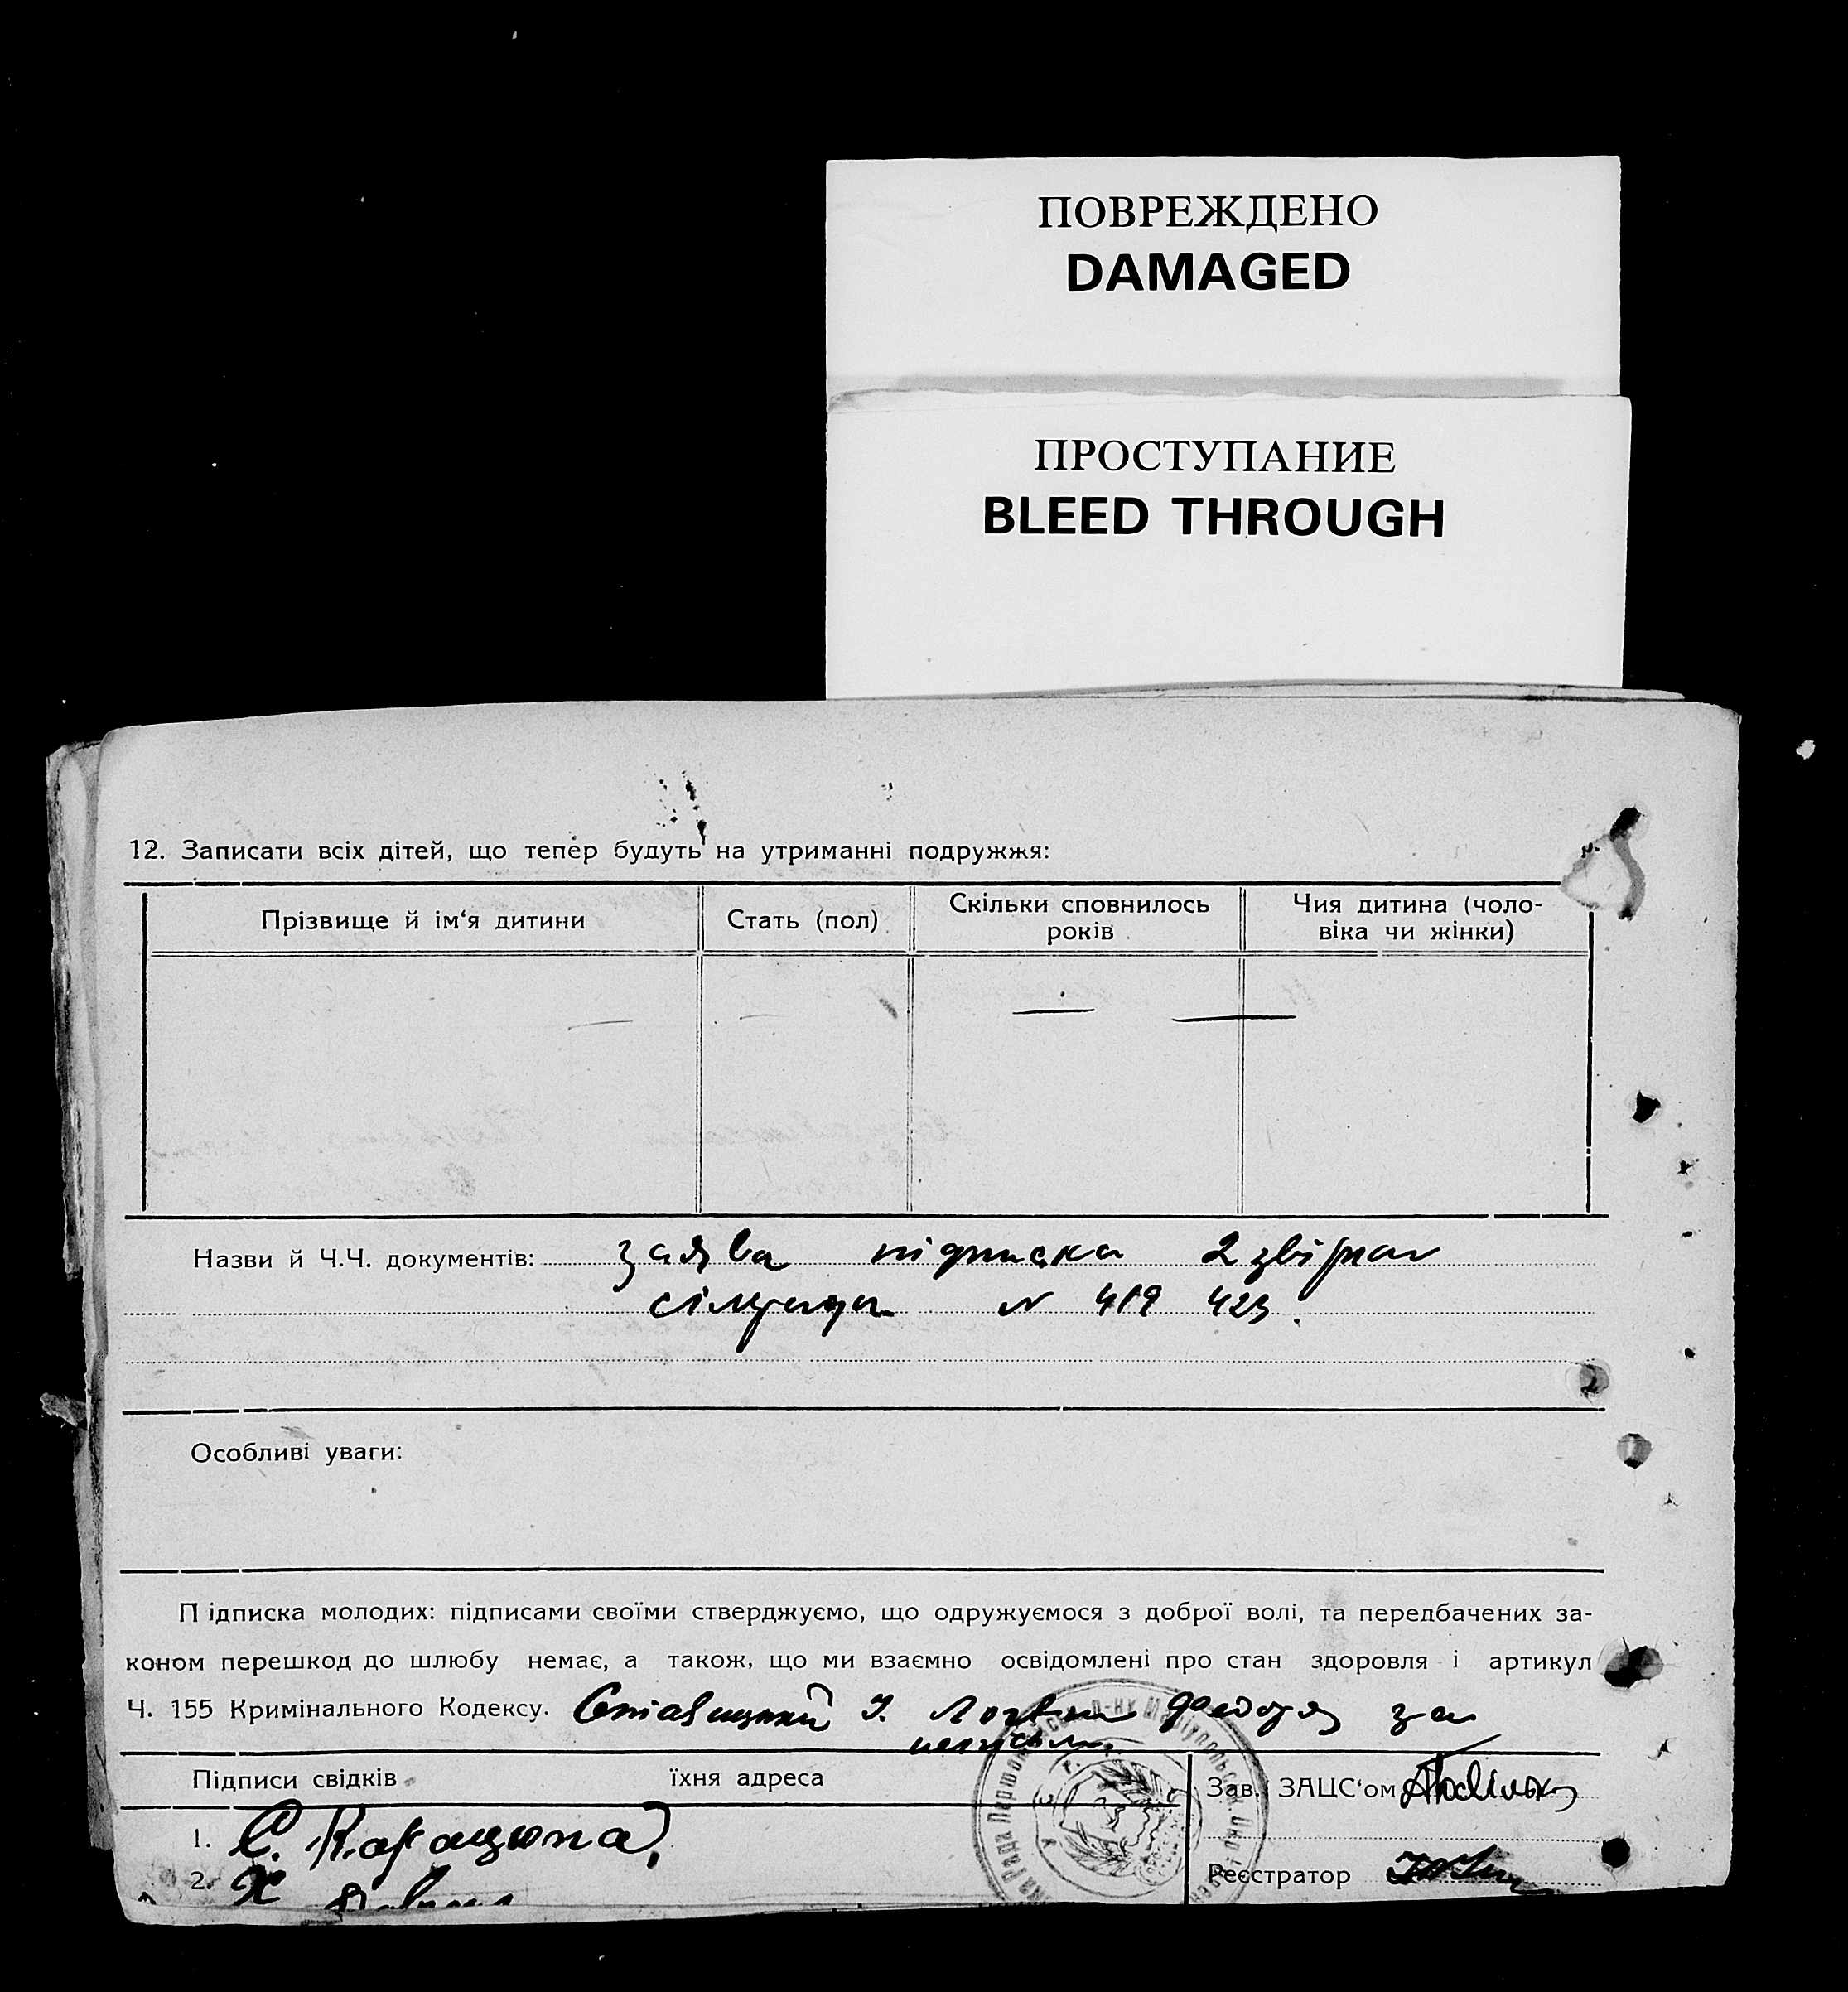 ПОВРЕЖДЕНО
DAMAGED
ПРОСТУПАНИЕ
BLEED THROUGH
12. Записати всіх дітей, що тепер будуть на утриманні подружжя:
Прізвище й ім‘я дитини
Стать (пол)
Скільки сповнилось
років
Чия дитина (чоло-
віка чи жінки)
Назви й Ч.Ч. документів: заява підписка 2 звірки
сільради № 419 423.
Особливі уваги:
Підписка молодих: підписами своїми стверджуємо, що одружуємося з доброї волі, та передбачених за-
коном перешкод до шлюбу немає, а також, що ми взаємно освідомлені про стан здоровля і артикул
Ч. 155 Кримінального Кодексу. за
Підписи свідків їхня адреса
Зав. ЗАЦС‘ом
1. С. Карацюпа
2. Х
Реєстратор